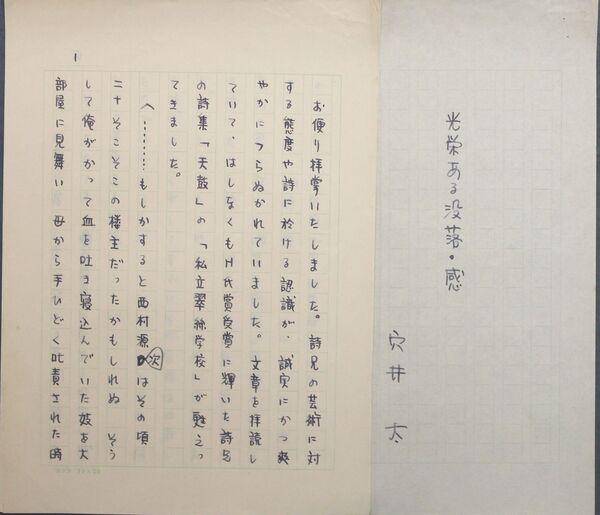 光栄ある没落・感
穴井 太
1
お便り拝掌いたしました。詩兄の芸術に対
する態度や詩に於ける認識が、誠実にかつ爽
やかにつらぬかれていました。文章を拝読し
ていて、はしなくもH氏賞受賞に輝いた詩兄
の詩集「天鼓」の「私立翠糸学校」が甦えっ
てきました。
へ………もしかすると西村源次はその頃
二十そこそこの楼主だったかもしれぬ そう
して俺がかって血を吐き寝込んでいた妓を大
部屋に見舞い 母から手ひどく叱責された時